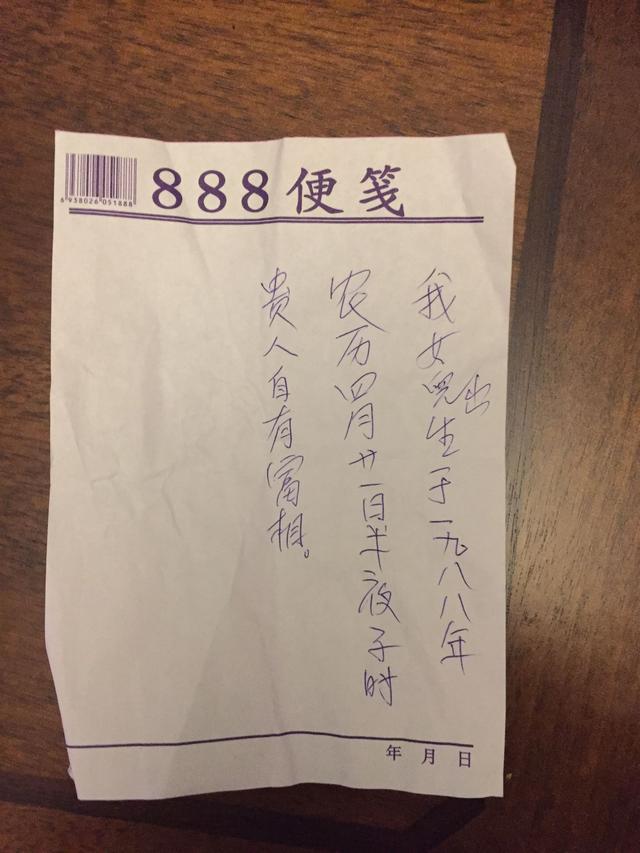 6 938026 051888
888便笺
我女儿出生于一九八八年
农历四月廿一日半夜子时
贵人自有富相。
年 月 日